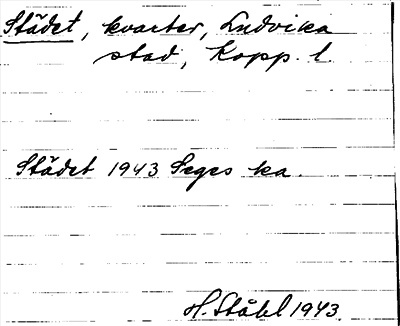 Städet, kvarter, Ludvika
stad, Kopp. l.
Städet 1943 Seges ka.
H. Ståhl 1943.